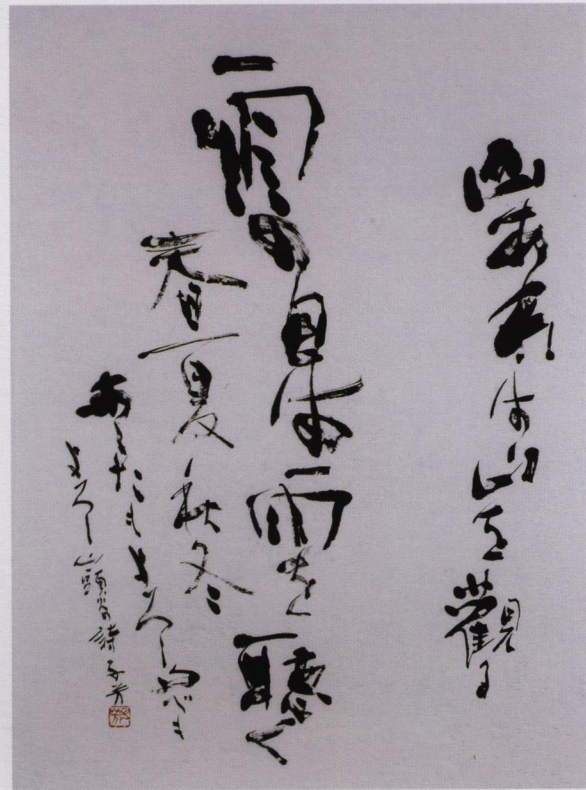 山あれば山を観る
雨の日は雨を聴く
春夏秋冬
あしたもよろし
よろし 山頭火の詩